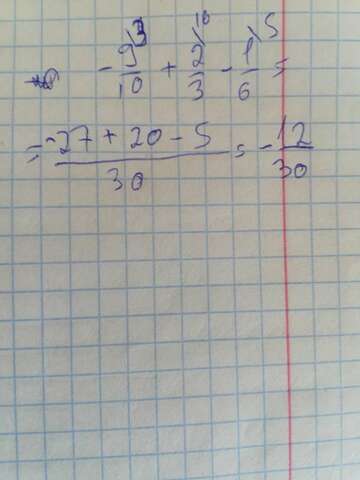 -9/10 ³ + 2/3 ¹⁰ - 1/6 ⁵ =
= -27 + 20 - 5 / 30 = - 12/30